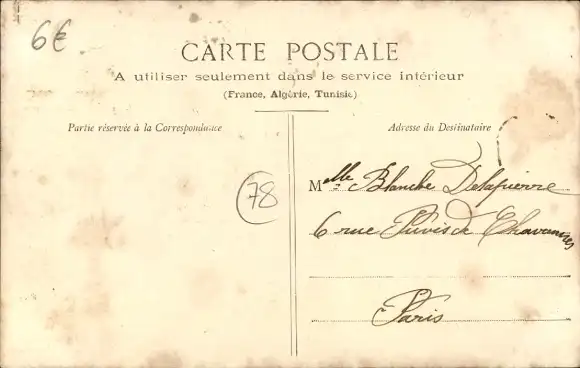 6€
CARTE POSTALE
A utiliser seulement dans le service intérieur
(France, Algérie, Tunisie)
Partie réservée à la Correspondance
Adresse du Destinataire
78
Melle Blanche Delapierre
6 rue Puvis de Chavannes
Paris